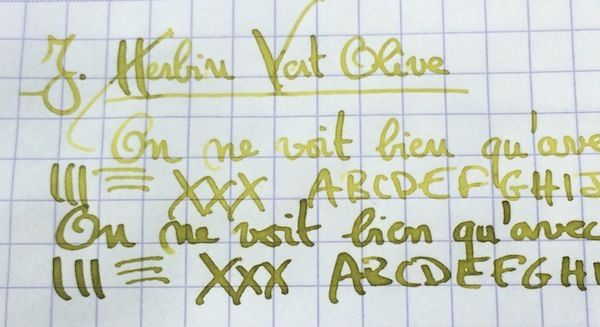 J. Herbin Vert Olive
On ne voit bien qu'ave
||| XXX ABCDEFGHIJ
On ne voit bien qu'avec
||| XXX ABCDEFGHI